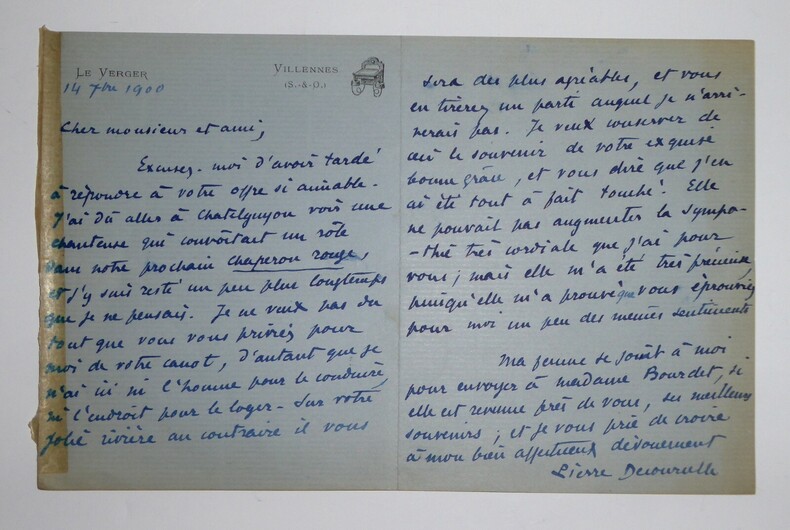 LE VERGER
VILLENNES
(S.-&-O.)
14 7bre 1900
Cher monsieur et ami,
Excusez-moi d'avoir tardé
à répondre à votre offre si aimable.
J'ai dû aller à Chatelguyon voir une
chanteuse qui convoitait un rôle
dans notre prochain chaperon rouge,
et j'y suis resté un peu plus longtemps
que je ne pensais. Je ne veux pas du
tout que vous vous priviez pour
moi de votre canot, d'autant que je
n'ai ici ni l'homme pour le conduire,
ni l'endroit pour le loger - Sur votre
jolie rivière au contraire il vous
sera des plus agréables, et vous
en tirerez un parti auquel je n'arri-
verais pas. Je veux conserver de
ceci le souvenir de votre exquise
bonne grâce, et vous dire que j'en
ai été tout à fait touché. Elle
ne pouvait pas augmenter la sympa-
-thie très cordiale que j'ai pour
vous ; mais elle m'a été très précieuse,
puisqu'elle m'a prouvé que vous éprouviez
pour moi un peu des mêmes sentiments
Ma femme se joint à moi
pour envoyer à madame Bourdet, si
elle est revenue près de vous, ses meilleurs
souvenirs ; et je vous prie de croire
à mon bien affectueux dévouement
Pierre Decourcelle